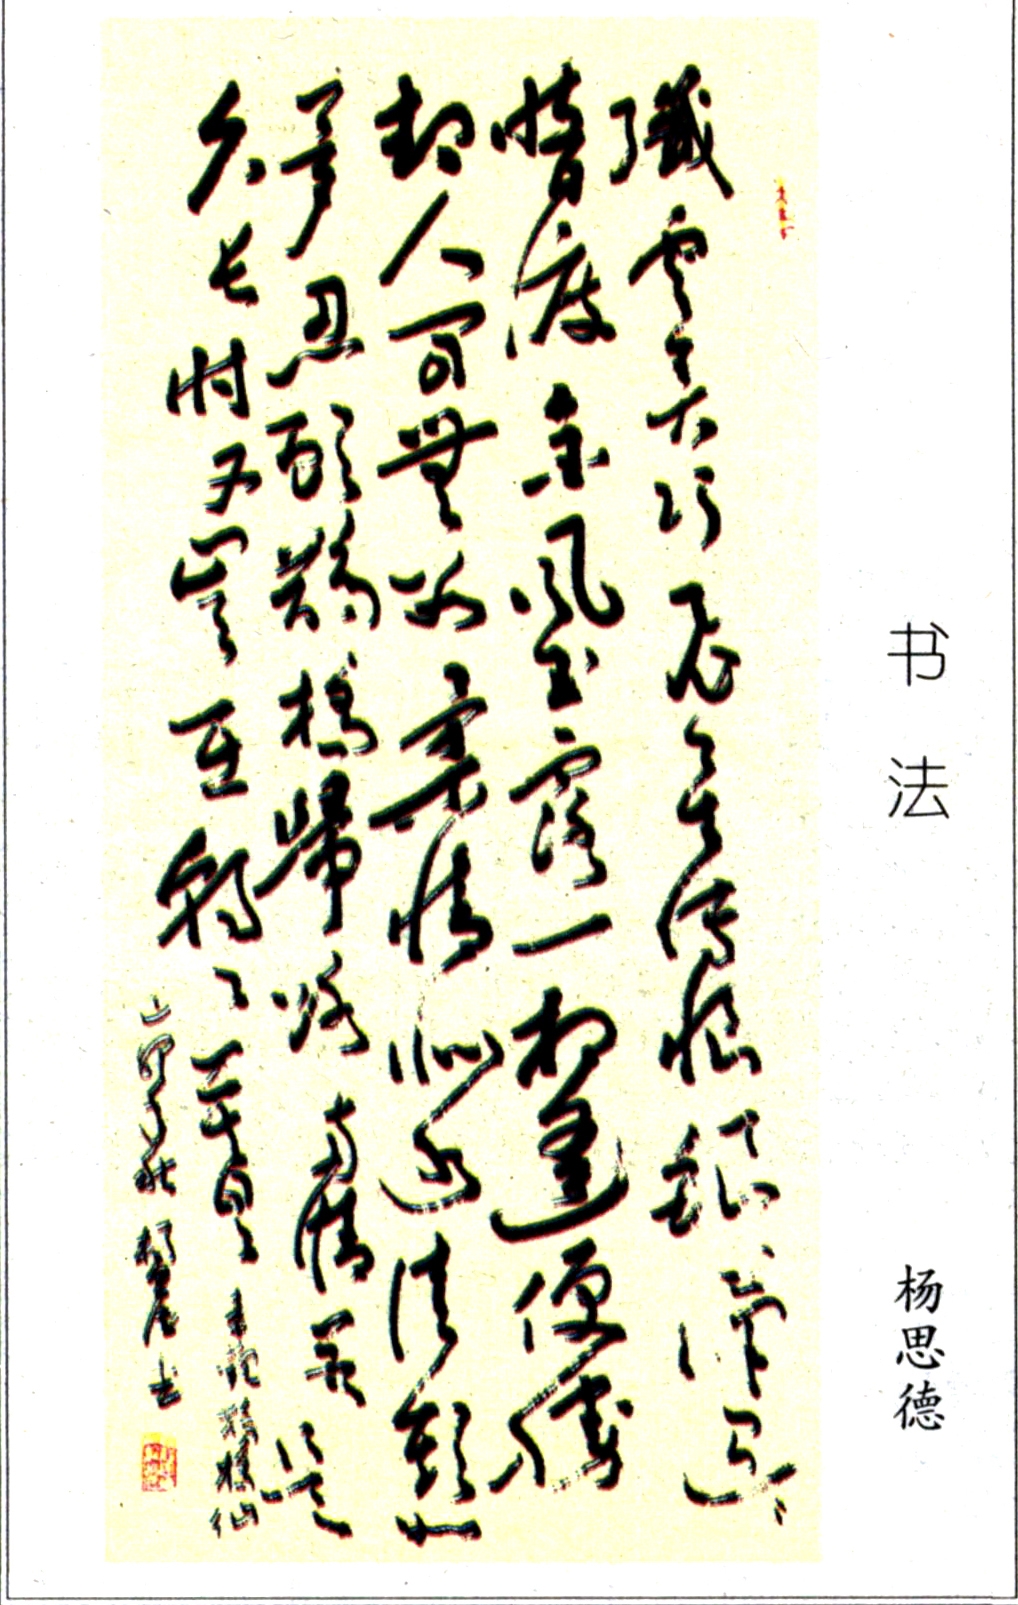 书法
杨思德
纖雲弄巧飛星傳恨銀漢迢々
暗度金風玉露一相逢便勝
却人间無数柔情似水佳期如
夢忍顧鵲橋歸路兩情若是
久长时又豈在朝々暮々 秦觀鵲橋仙